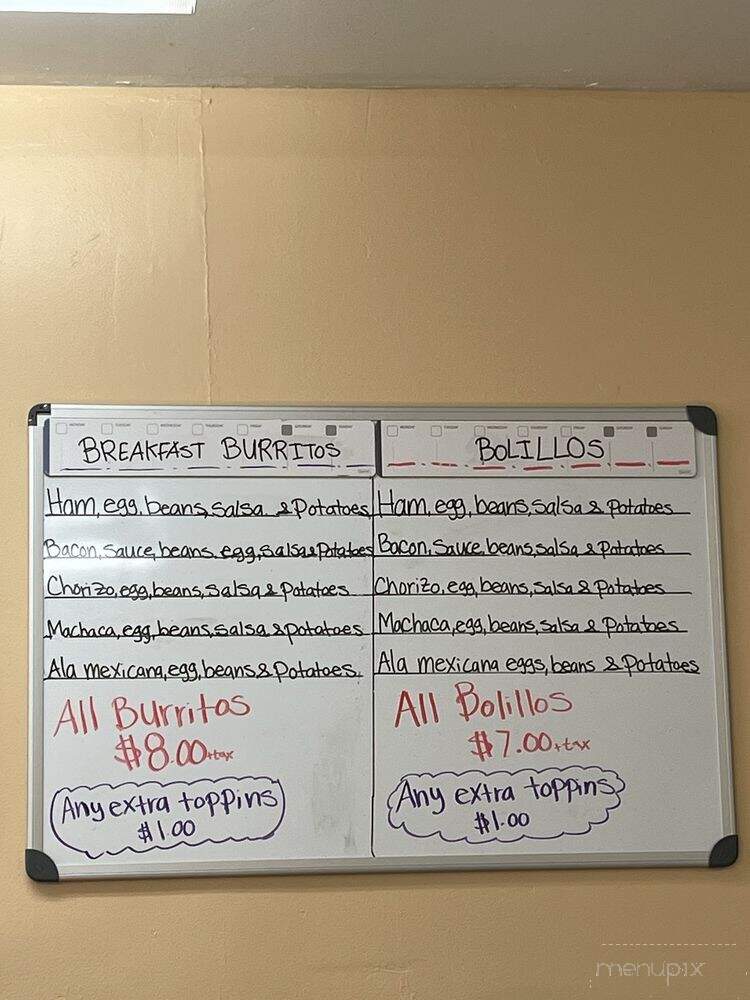 BREAKFAST BURRITOS
Ham, egg, beans, salsa & Potatoes
Bacon, sauce, beans, egg, salsa & Potatoes
Chorizo, egg, beans, salsa & Potatoes
Machaca, egg, beans, salsa & potatoes
Ala mexicana, egg, beans & Potatoes.
All Burritos
$8.00 +tax
Any extra toppins
$1.00
BOLILLOS
Ham, egg, beans, salsa & Potatoes
Bacon, Sauce, beans, salsa & Potatoes
Chorizo, egg, beans, Salsa & Potatoes
Machaca, egg, beans, salsa & Potatoes
Ala mexicana eggs, beans & Potatoes
All Bolillos
$7.00 +tax
Any extra toppins
$1.00
menupix